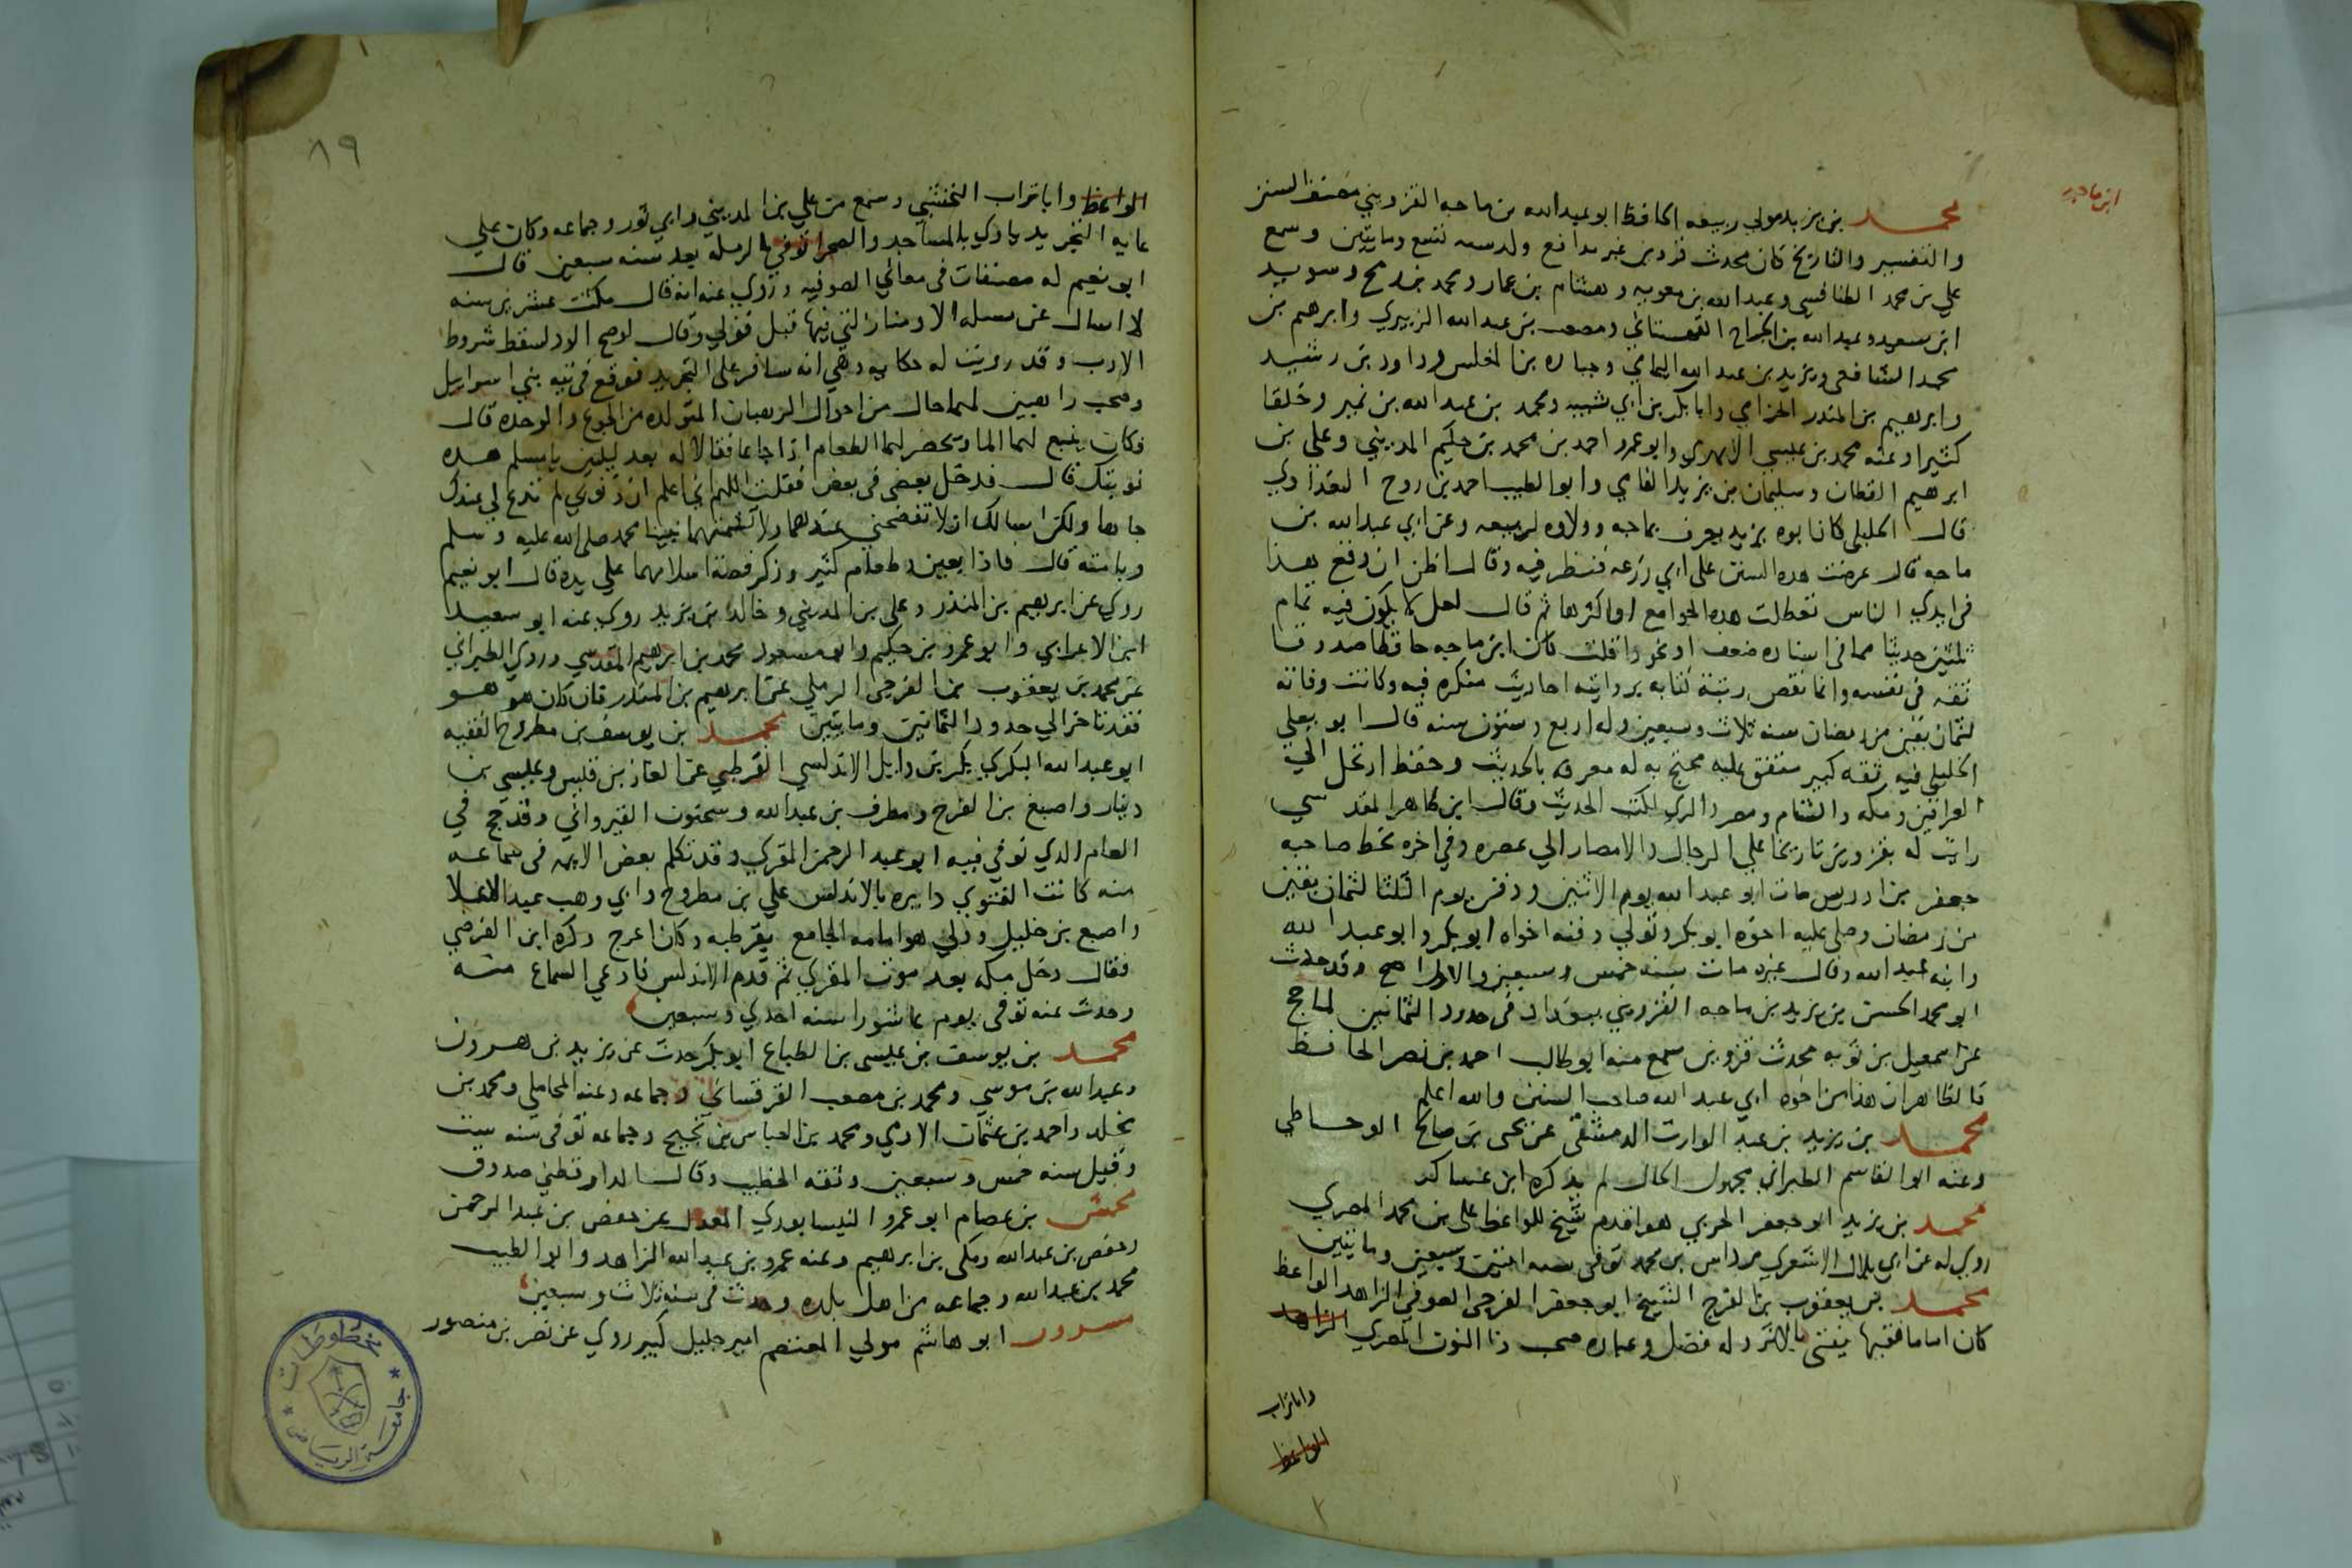 ابن ماجه
محمد بن يزيد مولى ربيعه الحافظ ابو عبد الله بن ماجه القزويني مصنف السنن
والتفسير والتاريخ كان محدث قزوين غير مدافع ولد سنه تسع ومايتين وسمع
علي بن محمد الطنافسي وعبد الله بن معويه وهشام بن عمار ومحمد بن رمح وسويد
ابن سعيد وعبد الله بن الجراح القهستاني ومصعب بن عبد الله الزبيري وابرهيم بن
محمد الشافعي ويزيد بن عبد الله اليمامي وجباره بن المغلس وداود بن رشيد
وابرهيم بن المنذر الحزامي وابا بكر بن ابي شيبه ومحمد بن عبد الله بن نمير وخلقا
كثيرا وعنه محمد بن عيسى الابهري وابو عمرو احمد بن محمد بن حكيم المديني وعلي بن
ابرهيم القطان وسليمان بن يزيد الفامي وابو الطيب احمد بن روح البغدادي
قال الخليلي كان ابوه يزيد يعرف بماجه وولاوه لربيعه وعن ابي عبد الله بن
ماجه قال عرضت هذه السنن على ابي زرعه فنظر فيه وقال اظن ان وقع هذا
في ايدي الناس تعطلت هذه الجوامع او اكثرها ثم قال لعل لا يكون فيه تمام
ثلثين حديثا مما في اسناده ضعف او نحو ذا قلت كان ابن ماجه حافظا صدوقا
ثقه في نفسه وانما نقص رتبة كتابه بروايته احاديث منكره فيه وكانت وفاته
لثمان بقين من رمضان سنه ثلاث وسبعين وله اربع وستون سنه قال ابو يعلي
الخليلي فيه ثقه كبير متفق عليه محتج به له معرفه بالحديث وحفظ ارتحل الي
العراقين ومكه والشام ومصر والري لكتب الحديث وقال ابن طاهر المقدسي
رايت له بقزوين تاريخا على الرجال والامصار الي عصره وفي اخره بخط صاحبه
جعفر بن ادريس مات ابو عبد الله يوم الاثنين ودفن يوم الثلثا لثمان بقين
من رمضان وصلى عليه اخوه ابو بكر وتولي دفنه اخواه ابو بكر وابو عبد الله
وابنه عبد الله وقال غيره مات سنه خمس وسبعين والاول اصح وقد حدث
ابو محمد الحسن بن يزيد بن ماجه القزويني ببغداد في حدود الثمانين لما حج
عن اسمعيل بن توبه محدث قزوين سمع منه ابو طالب احمد بن نصر الحافظ
فالظاهر ان هذا من اخوه ابي عبد الله صاحب السنن والله اعلم
محمد بن يزيد بن عبد الوارث الدمشقي عن يحيى بن صالح الوحاظي
وعنه ابو القاسم الطبراني مجهول الحال لم يذكره ابن عساكر
محمد بن يزيد ابو جعفر الحربي هو اقدم شيخ للواعظ علي بن محمد المصري
روي له عن ابي بلال الاشعري مرداس بن محمد توفي سنه اثنتين وسبعين ومايتين
محمد بن يعقوب بن الفرج الشيخ ابو جعفر الفرجي الصوفي الزاهد الواعظ
كان اماما فقيها يفتي بالاثر وله فضل وعباده صحب ذا النون المصري الزاهد
وابا تراب
الواعظ
٨٩
الواعظ وابا تراب النخشبي وسمع من علي بن المديني وابي ثور وجماعه وكان علي
غايه التجريد ياوي بالمساجد والصحرا توفي بالرمله بعد سنه سبعين قال
ابو نعيم له مصنفات في معاني الصوفيه وروي عنه انه قال مكثت عشرين سنه
لا اسال عن مسله الا ومنازلتي فيها قبل قولي وقال لو صح الود لسقط شروط
الادب وقد رويت له حكايه وهي انه سافر على التجريد فوقع في تيه بني اسرايل
وصحب راهبين لهما حال من احوال الرهبان المتولده من الجوع والوحده قال
فكان ينبع لهما الما ويحضر لهما الطعام اذا جاعا فقالا له بعد ليلتين يا مسلم هذه
نوبتك قال فدخل بعضي في بعض فقلت اللهم اني اعلم ان ذنوبي لم تدع لي عندك
جاها ولكن اسالك ان لا تفضحني عندهما ولا تشمتهما بنبينا محمد صلى الله عليه وسلم
وبامته قال فاذا بعين وطعام كثير وذكر قصة اسلامهما علي يده قال ابو نعيم
روي عن ابرهيم بن المنذر وعلي بن المديني وخالد بن يزيد روي عنه ابو سعيد
ابن الاعرابي وابو عمرو بن حكيم وابو مسعود محمد بن ابرهيم المقدسي وروي الطبراني
عن محمد بن يعقوب بن الفرجي الرملي عن ابرهيم بن المنذر فان كان هو هو
فقد تاخر الي حدود الثمانين ومايتين محمد بن يوسف بن مطروح الفقيه
ابو عبد الله البكري بكر بن وايل الاندلسي القرطبي عن الغاز بن قيس وعيسي بن
دينار واصبغ بن الفرج ومطرف بن عبد الله وسحنون القيرواني وقد حج في
العام الذي توفي فيه ابو عبد الرحمن المقري وقد تكلم بعض الايمه في سماعه
منه كانت الفتوي دايره بالاندلس علي بن مطروح وابي وهب عبد الاعلا
واصبغ بن خليل وولي هو امامه الجامع بقرطبه وكان اعرج ذكره ابن الفرضي
فقال دخل مكه بعد موت المقري ثم قدم الاندلس فادعي السماع منه
وحدث عنه توفي يوم عاشورا سنه احدي وسبعين
محمد بن يوسف بن عيسى بن الطباع ابو بكر حدث عن يزيد بن هرون
وعبد الله بن موسي ومحمد بن مصعب القرقساني وجماعه وعنه المحاملي ومحمد بن
مخلد واحمد بن عثمان الادمي ومحمد بن العباس بن نجيح وجماعه توفي سنه ست
وقيل سنه خمس وسبعين وثقه الخطيب وقال الدارقطني صدوق
محمش بن عصام ابو عمرو النيسابوري المعدل عن حفص بن عبد الرحمن
وحفص بن عبد الله ومكي بن ابرهيم وعنه عمرو بن عبد الله الزاهد وابو الطيب
محمد بن عبد الله وجماعه من اهل بلده وحدث في سنة ثلاث وسبعين
مسرور ابو هاشم مولي المعتصم امير جليل كبير روي عن نصر بن منصور
مخطوطات
جامعة الرياض